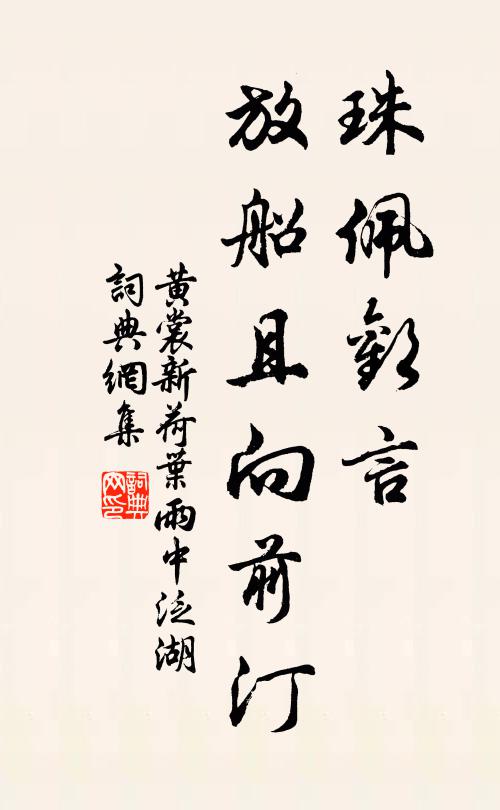 珠佩歡言
放船且向前汀
黃裳新荷葉雨中泛湖
詞典網集
詞典
网印